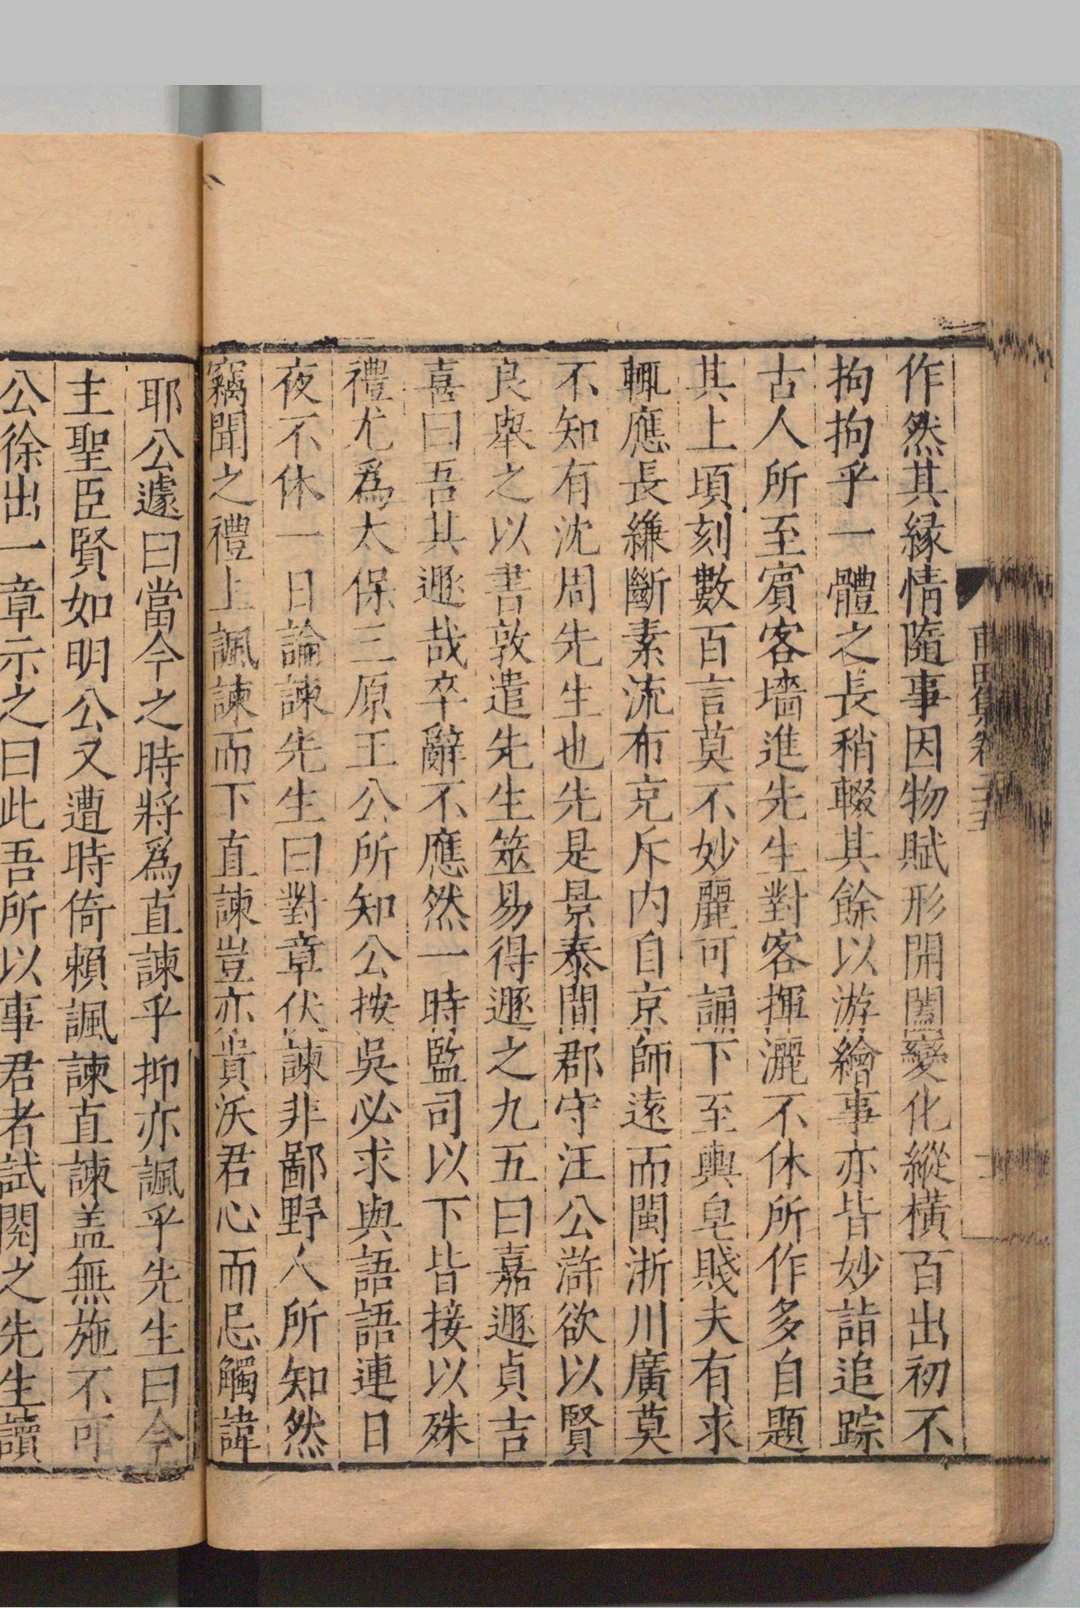 作然其縁情隨事因物賦形開闔變化縱橫百出初不
拘拘乎一體之長稍輟其餘以游繪事亦皆妙詣追踪
古人所至賓客墻進先生對客揮灑不休所作多自題
其上頃刻數百言莫不妙麗可誦下至輿皂賤夫有求
輒應長縑斷素流布充斥内自京師逺而閩浙川廣莫
不知有沈周先生也先是景泰間郡守汪公滸欲以賢
良舉之以書敦遣先生筮易得遯之九五曰嘉遯貞吉
喜曰吾其遯哉卒辭不應然一時監司以下皆接以殊
禮尤爲太保三原王公所知公按吳必求與語語連日
夜不休一日論諫先生曰對章伏諫非鄙野人所知然
竊聞之禮上諷諫而下直諫豈亦貴沃君心而忌觸諱
耶公遽曰當今之時將爲直諫乎抑亦諷乎先生曰今
主聖臣賢如明公又遭時倚賴諷諫直諫盖無施不可
公徐出一章示之曰此吾所以事君者試閱之先生讀